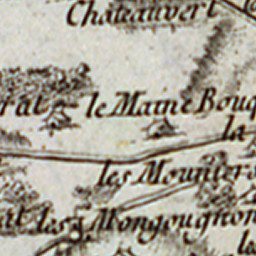 Chateauvert
rat le Maine Bouq
la
les Mouniers
at les Mongougnon
le